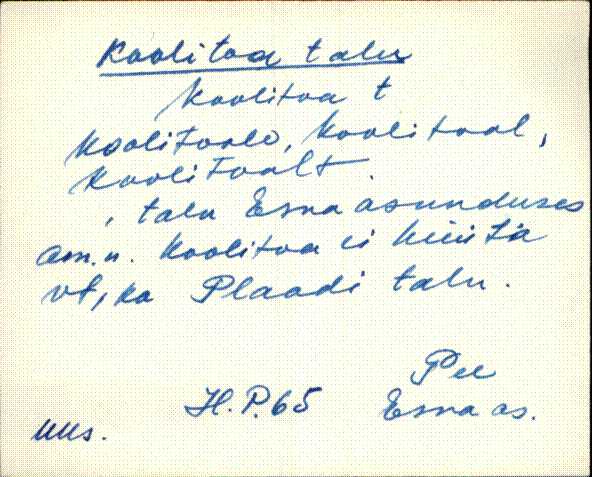 Koolitoa talu
Koolitoa t
Koolitoale, Koolitoal,
Koolitoalt.
, talu Esna asunduses
am. n. Koolitoa ei hüüta
vt, ka Plaadi talu.
Pee
H.P.65 Esna as.
uus.